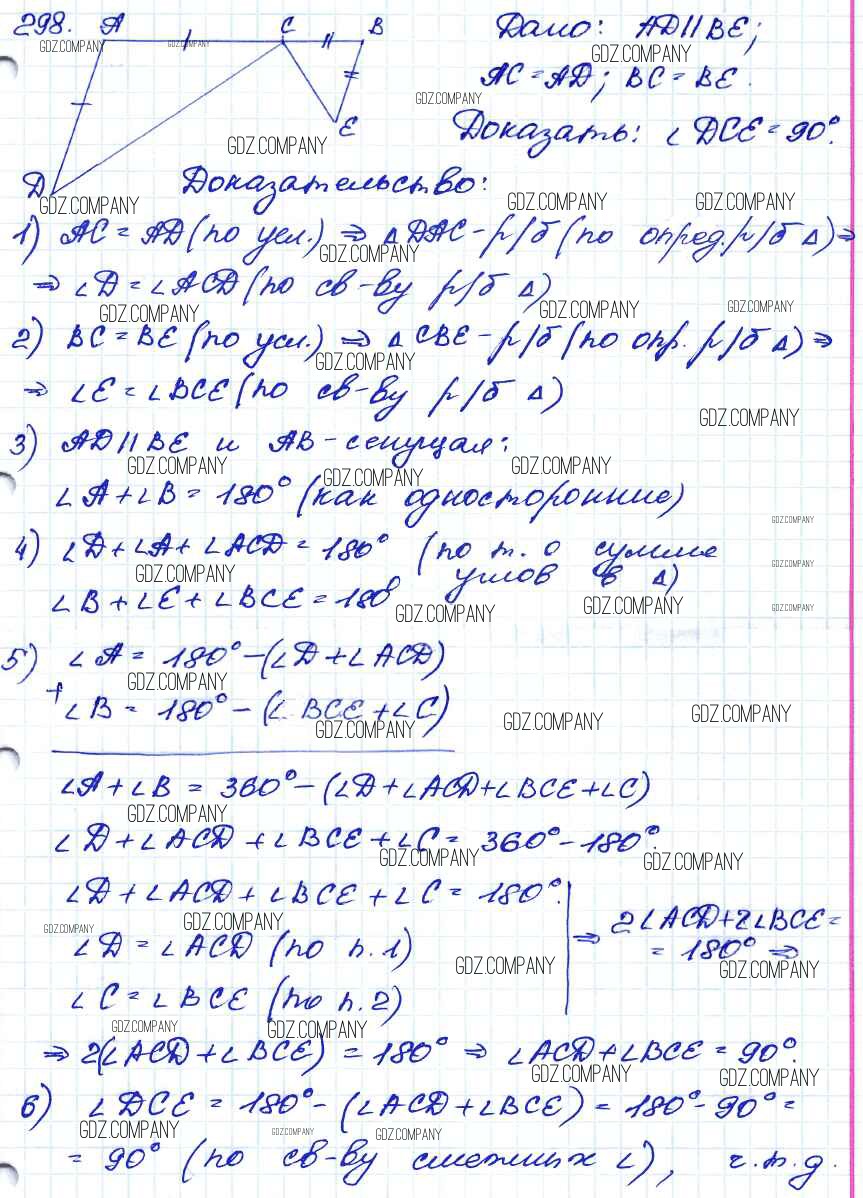 298. A C B Дано: AD || BE;
AC = AD; BC = BE.
E Доказать: ∠DCE = 90°.
D Доказательство:
1) AC = AD (по усл.) ⇒ △DAC - р/б (по опред. р/б △) ⇒
⇒ ∠D = ∠ACD (по св-ву р/б △)
2) BC = BE (по усл.) ⇒ △CBE - р/б (по опр. р/б △) ⇒
⇒ ∠E = ∠BCE (по св-ву р/б △)
3) AD || BE и AB - секущая:
∠A + ∠B = 180° (как односторонние)
4) ∠D + ∠A + ∠ACD = 180° (по т. о сумме
углов в △)
∠B + ∠E + ∠BCE = 180°
5) ∠A = 180° - (∠D + ∠ACD)
+ ∠B = 180° - (∠BCE + ∠C)
∠A + ∠B = 360° - (∠D + ∠ACD + ∠BCE + ∠C)
∠D + ∠ACD + ∠BCE + ∠C = 360° - 180°.
∠D + ∠ACD + ∠BCE + ∠C = 180°.
∠D = ∠ACD (по п. 1)
∠C = ∠BCE (по п. 2)
⇒ 2∠ACD + 2∠BCE =
= 180° ⇒
⇒ 2(∠ACD + ∠BCE) = 180° ⇒ ∠ACD + ∠BCE = 90°.
6) ∠DCE = 180° - (∠ACD + ∠BCE) = 180° - 90° =
= 90° (по св-ву смежных ∠), ч.т.д.
GDZ.COMPANY